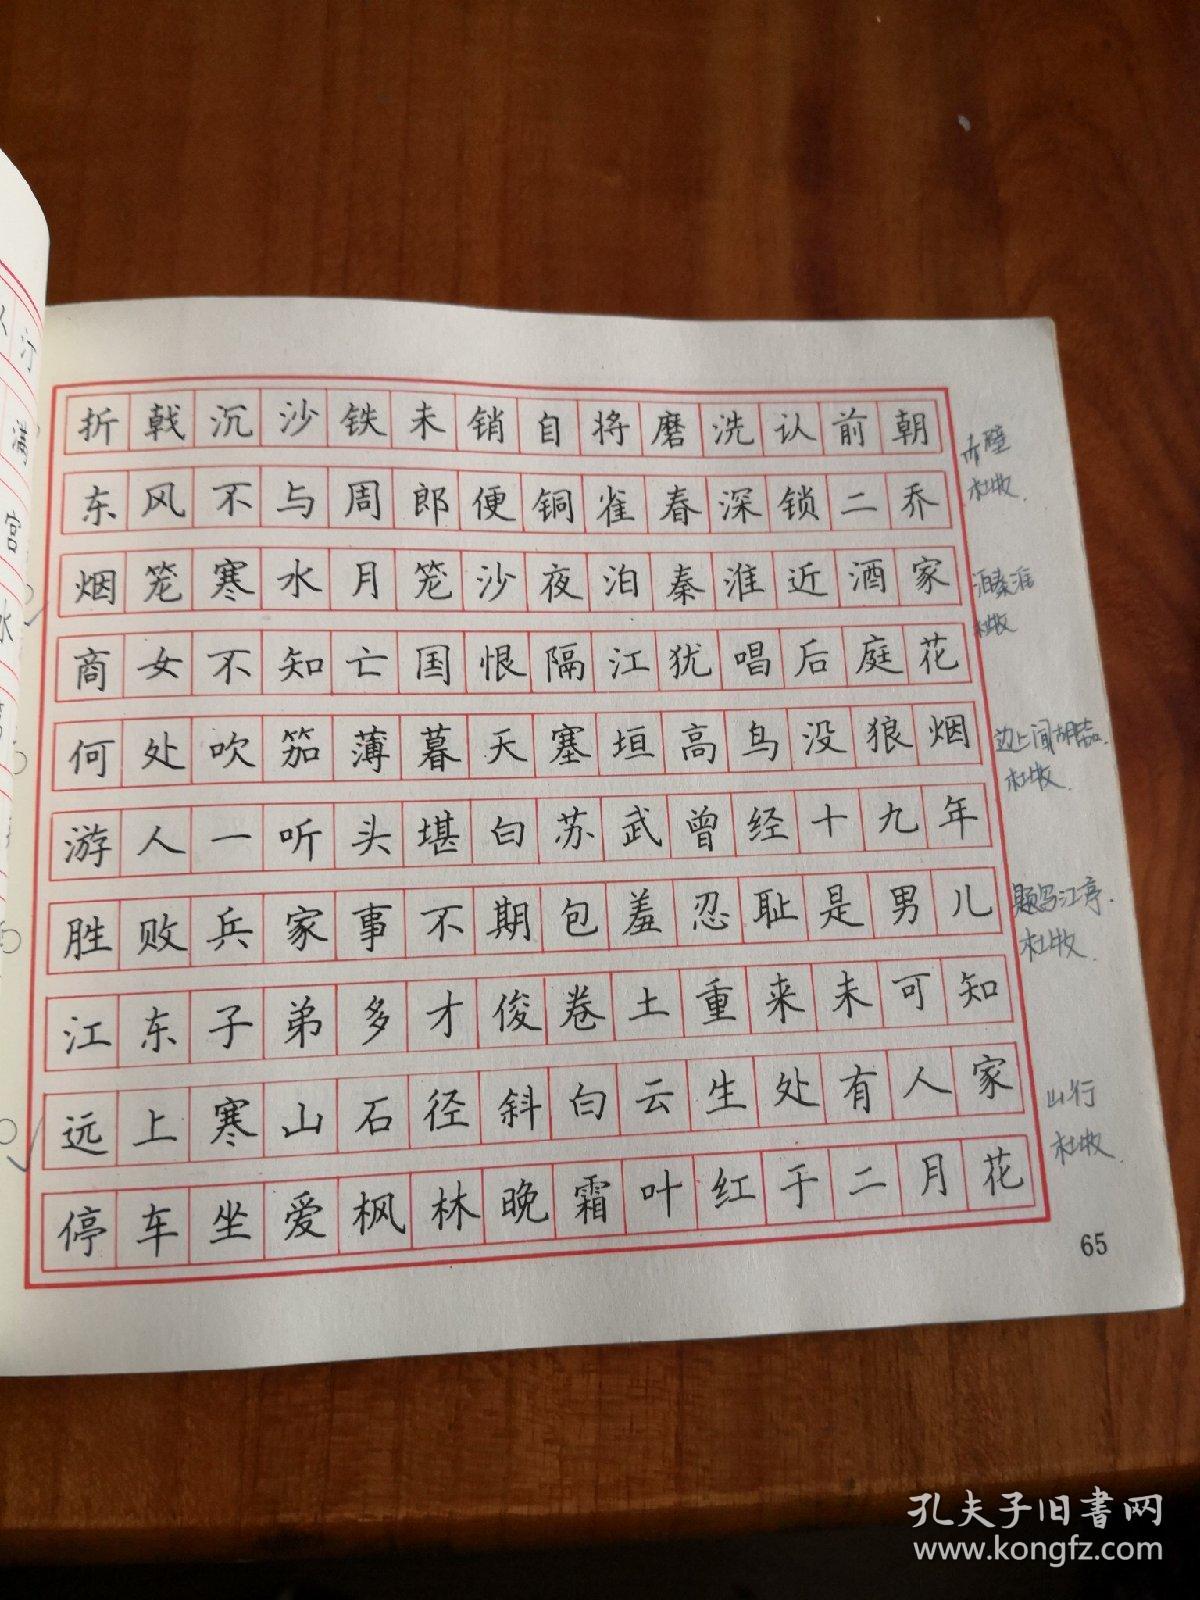 折戟沉沙铁未销自将磨洗认前朝
赤壁
杜牧.
东风不与周郎便铜雀春深锁二乔
烟笼寒水月笼沙夜泊秦淮近酒家
泊秦淮
杜牧
商女不知亡国恨隔江犹唱后庭花
何处吹笳薄暮天塞垣高鸟没狼烟
边上闻胡笳.
杜牧.
游人一听头堪白苏武曾经十九年
胜败兵家事不期包羞忍耻是男儿
题乌江亭.
杜牧.
江东子弟多才俊卷土重来未可知
远上寒山石径斜白云生处有人家
山行
杜牧.
停车坐爱枫林晚霜叶红于二月花
65
汀
满
宫
水
孔夫子旧书网
www.kongfz.com